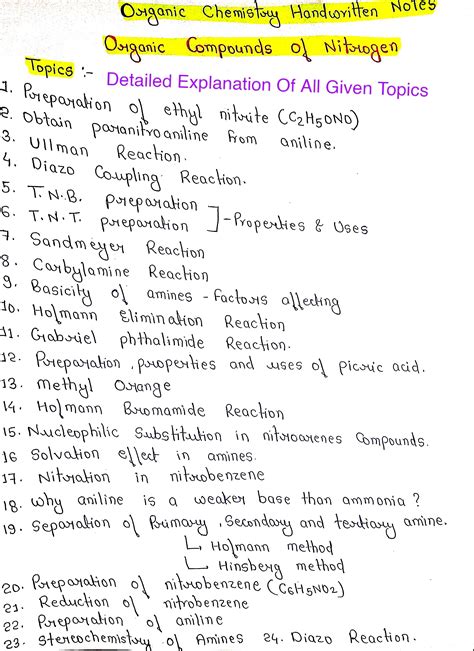 Organic Chemistry Handwritten Notes
Organic Compounds of Nitrogen
Topics :- Detailed Explanation Of All Given Topics
1. Preparation of ethyl nitrite (C2H5ONO)
2. Obtain paranitroaniline from aniline.
3. Ullman Reaction.
4. Diazo Coupling Reaction.
5. T.N.B. preparation
6. T.N.T. preparation ] - Properties & Uses
7. Sandmeyer Reaction
8. Carbylamine Reaction
9. Basicity of amines - factors affecting
10. Hofmann Elimination Reaction
11. Gabriel phthalimide Reaction.
12. Preparation, properties and uses of picric acid.
13. Methyl Orange
14. Hofmann Bromamide Reaction
15. Nucleophilic Substitution in nitroarenes Compounds.
16 Solvation effect in amines.
17. Nitration in nitrobenzene
18. Why aniline is a weaker base than ammonia ?
19. Separation of Primary, Secondary and tertiary amine.
↳ Hofmann method
↳ Hinsberg method
20. Preparation of nitrobenzene (C6H5NO2)
21. Reduction of nitrobenzene
22. Preparation of aniline
23. Stereochemistry of Amines 24. Diazo Reaction.